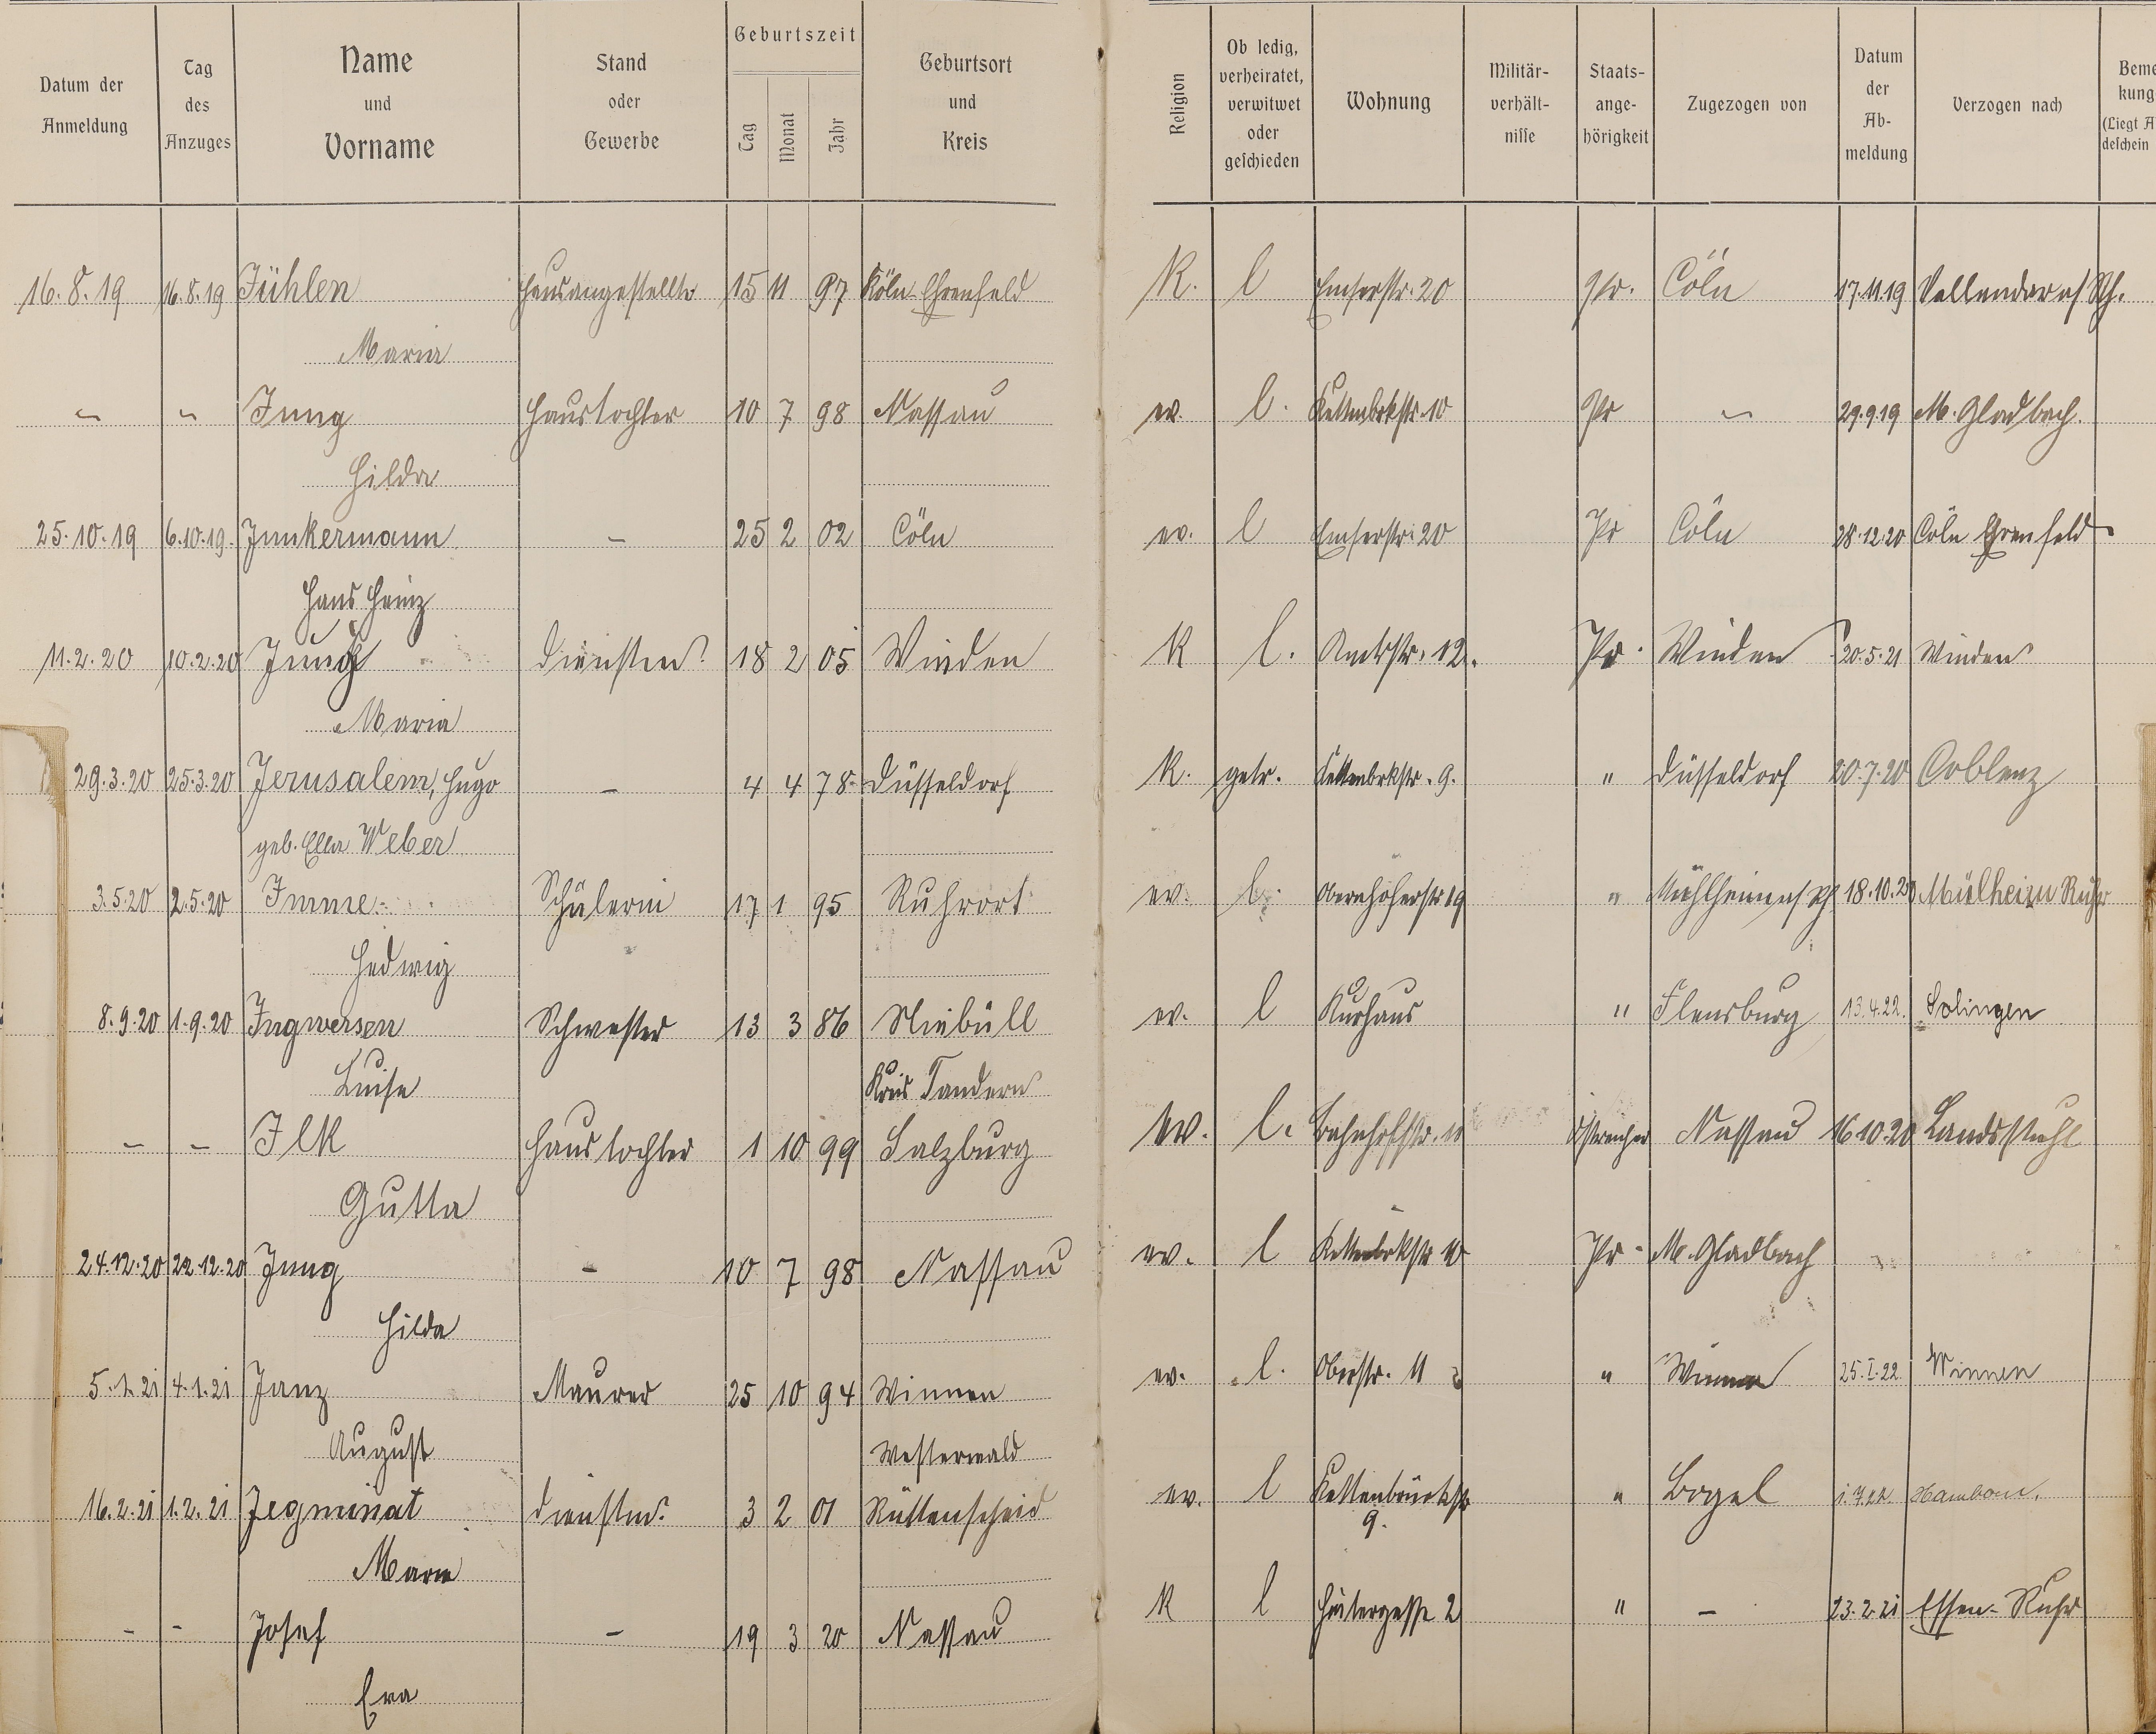 Datum der Anmeldung | Tag des Anzuges | Name und Vorname | Stand oder Gewerbe | Geburtszeit Tag Monat Jahr | Geburtsort und Kreis | Religion | Ob ledig, verheiratet, verwitwet oder geschieden | Wohnung | Militär-verhält-nisse | Staats-ange-hörigkeit | Zugezogen von | Datum der Ab-meldung | Verzogen nach | Beme kung (Liegt A deschein
16.8.19 | 16.8.19 | Jühlen | Hausangestellte | 15 | 11 | 97 | Köln Ehrenfeld | K. | l | Emserstr. 20 | Pr. | Cöln | 17.11.19 | Vallendar a/Rh.
Maria
" | " | Jung | Haustochter | 10 | 7 | 98 | Nassau | ev. | l. | Kettenbrkstr. 10 | Pr | " | 29.9.19 | M. Gladbach.
Hilda
25.10.19 | 6.10.19. | Junkermann | – | 25 | 2 | 02 | Cöln | ev. | l | Emserstr. 20 | Pr | Cöln | 28.12.20 | Cöln Ehrenfeld
Hans Heinz
11.2.20 | 10.2.20 | Jung | Dienstm. | 18 | 2 | 05 | Winden | K | l. | Amtsstr. 12. | Pr. | Winden | 20.5.21 | Winden
Maria
29.3.20 | 25.3.20 | Jerusalem, Hugo | – | 4 | 4 | 78 | Düsseldorf | K. | getr. | Kettenbrkstr. 9. | " | Düsseldorf | 20.7.20 | Coblenz
geb. Ella Weber
3.5.20 | 2.5.20 | Imme | Schülerin | 17 | 1 | 95 | Ruhrort | ev. | l. | Obernhoferstr 19 | " | Mühlheim a/Rh | 18.10.20 | Mülheim Ruhr
Hedwig
8.9.20 | 1.9.20 | Ingwersen | Schwester | 13 | 3 | 86 | Niebüll | ev. | l | Kurhaus | " | Flensburg | 13.4.22. | Solingen
Luise | Kreis Tondern
– | – | Ilk | Haustochter | 1 | 10 | 99 | Salzburg | ev. | l. | Bahnhofstr. | Östreicher | Nassau | 16.10.20 | Landstuhl
Gutta
24.12.20 | 22.12.20 | Jung | – | 10 | 7 | 98 | Nassau | ev. | l | Kettenbrkstr 10 | Pr | M. Gladbach
Hilda
5.1.21 | 4.1.21 | Janz | Maurer | 25 | 10 | 94 | Winnen | ev. | l. | Oberstr. 11 | " | Winnen | 25.I.22 | Winnen
August | Westerwald
16.2.21 | 1.2.21 | Jegminat | Dienstm. | 3 | 2 | 01 | Rüttenscheid | ev. | l | Kettenbrückstr 9. | " | Bogel | 1.7.22 | Hamborn.
Maria
– | – | Josef | – | 19 | 3 | 20 | Nassau | K | l | 2 | " | – | 23.2.21 | Essen-Ruhr
Eva